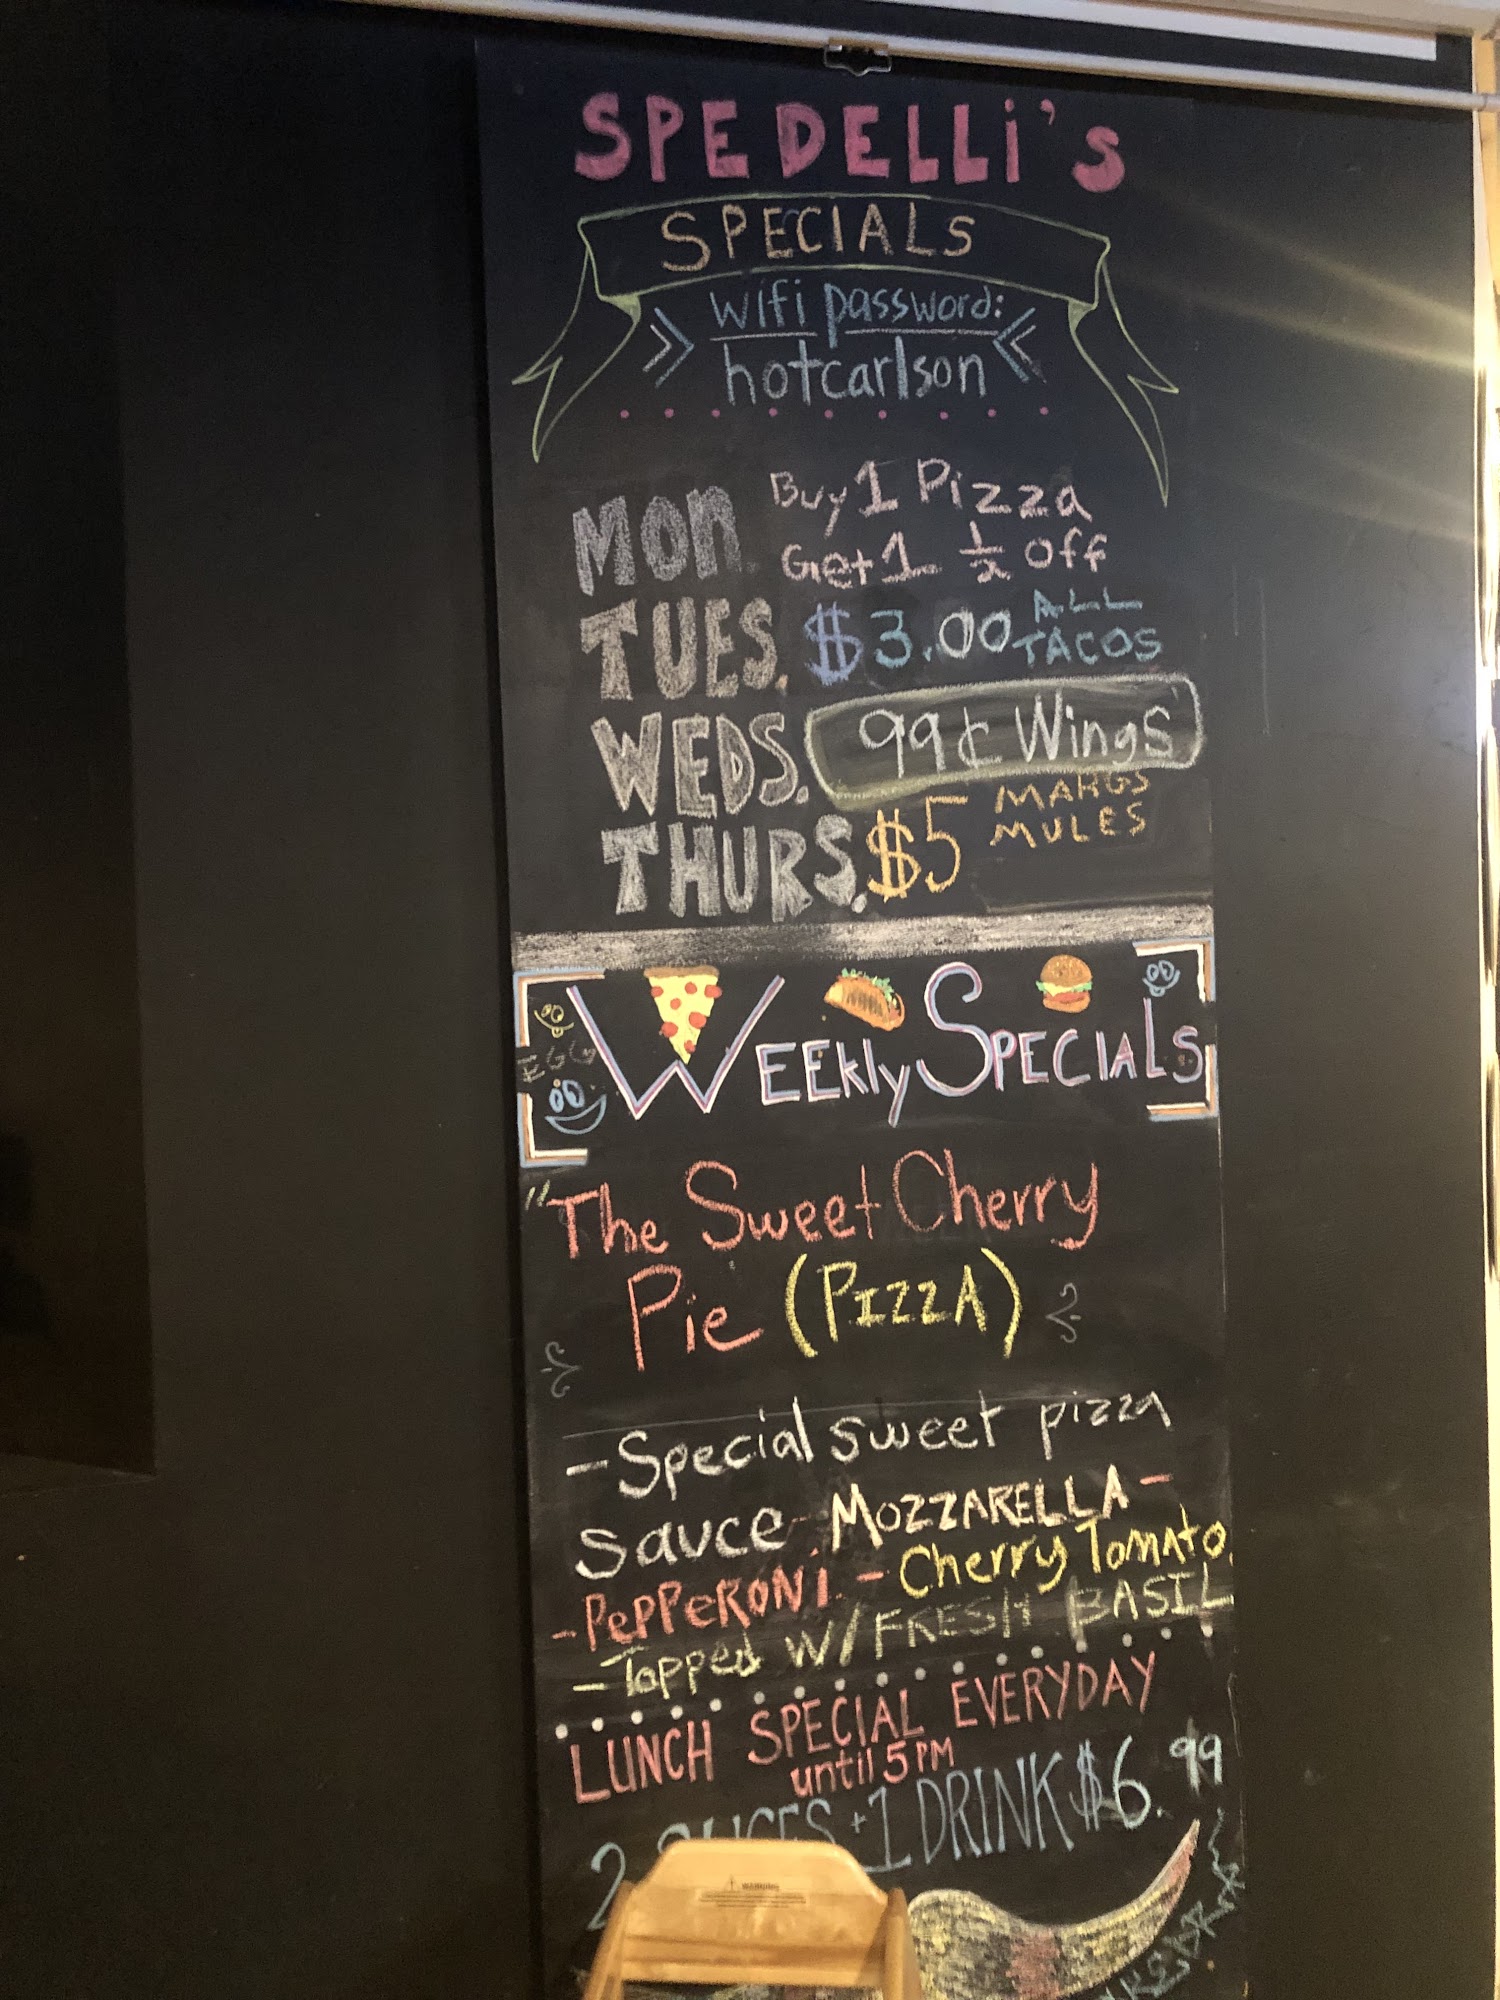 SPEDELLi's
SPECIALS
wifi password:
hotcarlson
MON. Buy 1 Pizza
Get 1 ½ Off
TUES. $3.00 ALL
TACOS
WEDS. 99¢ Wings
THURS. $5 MARGS
MULES
WEEkly SPECIALS
EGG
"The Sweet Cherry
Pie (PIZZA)
- Special sweet pizza
sauce - MOZZARELLA -
- PePPeRONi - Cherry Tomato
- Topped W/ FRESH BASIL
LUNCH SPECIAL EVERYDAY
until 5PM
2 SLICES + 1 DRINK $6.99
WARNING